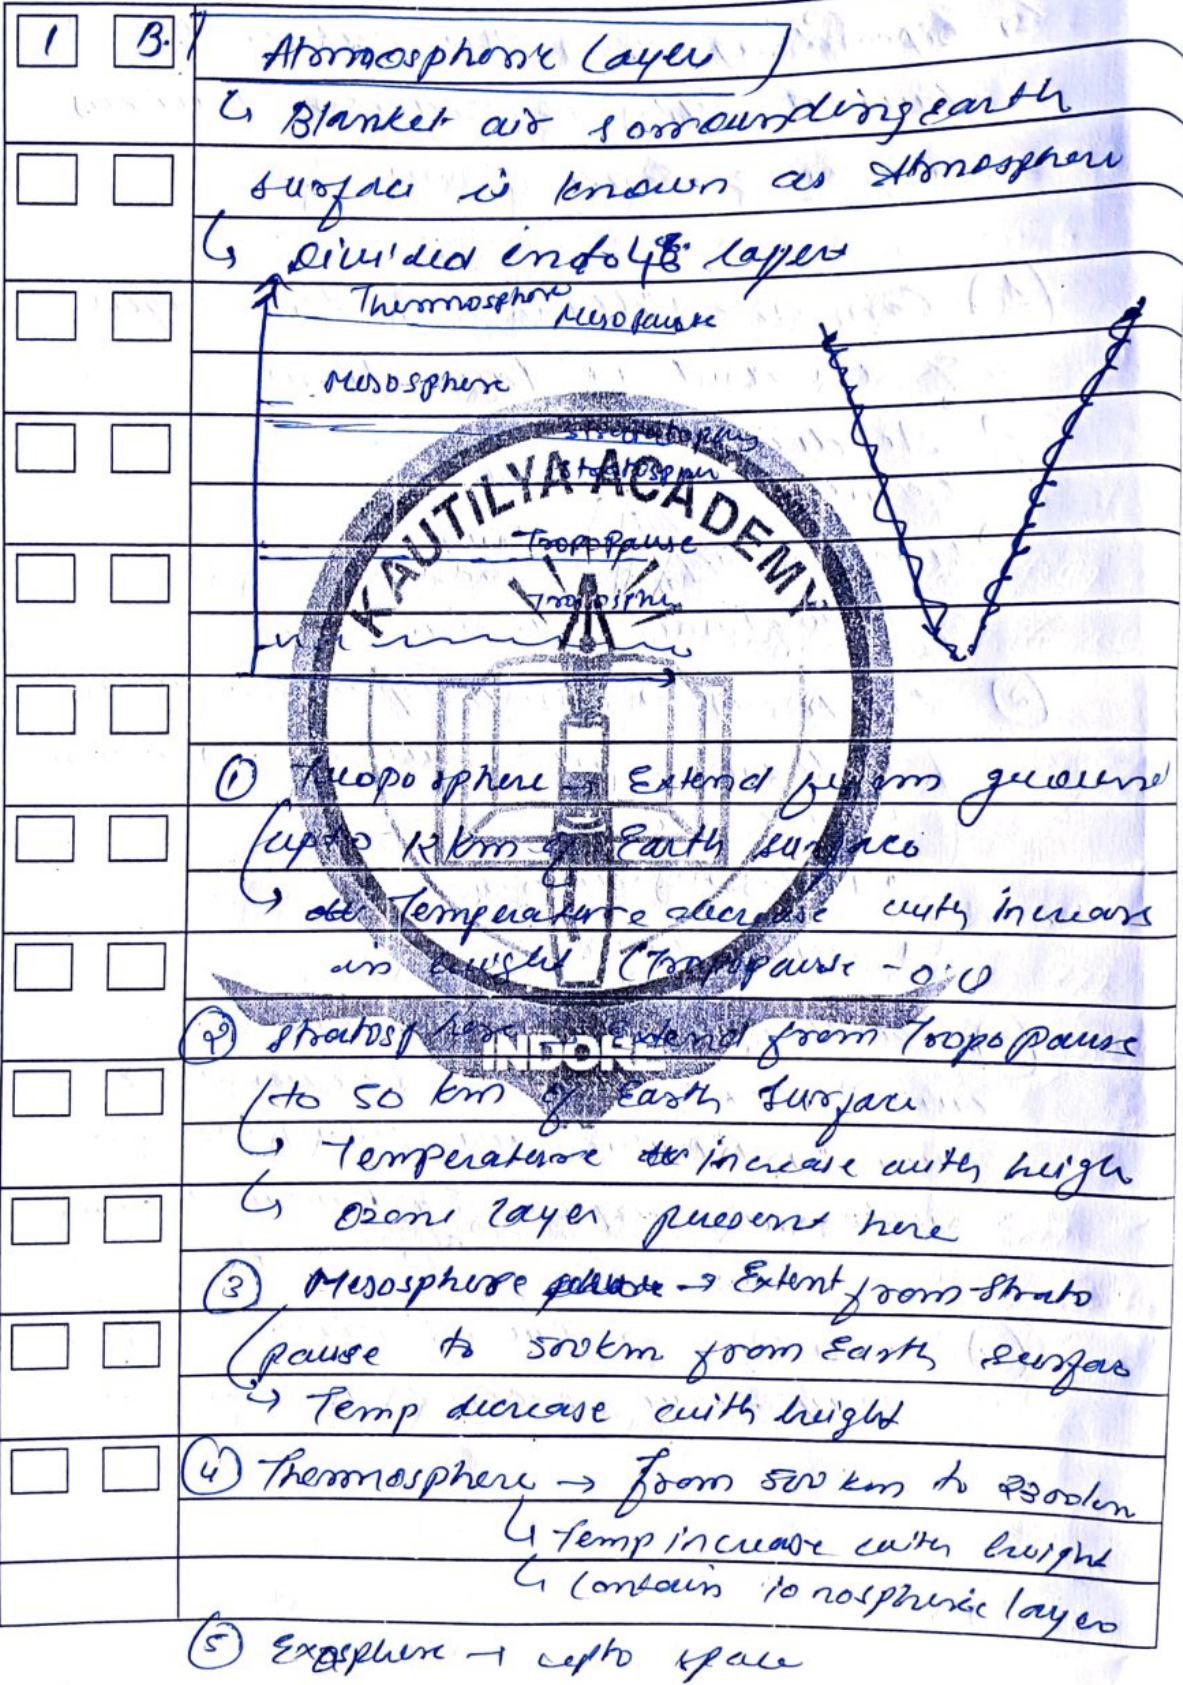 1 B.
Atmospheric Layer
↳ Blanket air sorrounding earth
surface is known as Atmosphere
↳ Divided into 4 layers
Thermosphere
Mesopause
Mesosphere
Tropopause
KAUTILYA ACADEMY
① Troposphere → Extend from ground
upto 12 km of Earth surface
↳ Temperature decrease with increase
in height (Tropopause
② Stratosphere Extend from Tropopause
INDORE
to 50 km of Earth Surface
↳ Temperature increase with heigh
↳ Ozone layer present here
③ Mesosphere → Extent from Strato
pause to 500km from Earth surface
↳ Temp decrease with height
④ Thermosphere → from 500 km to
↳ Temp increase with height
↳ Contain ionospheric layer
⑤ Exosphere → upto space